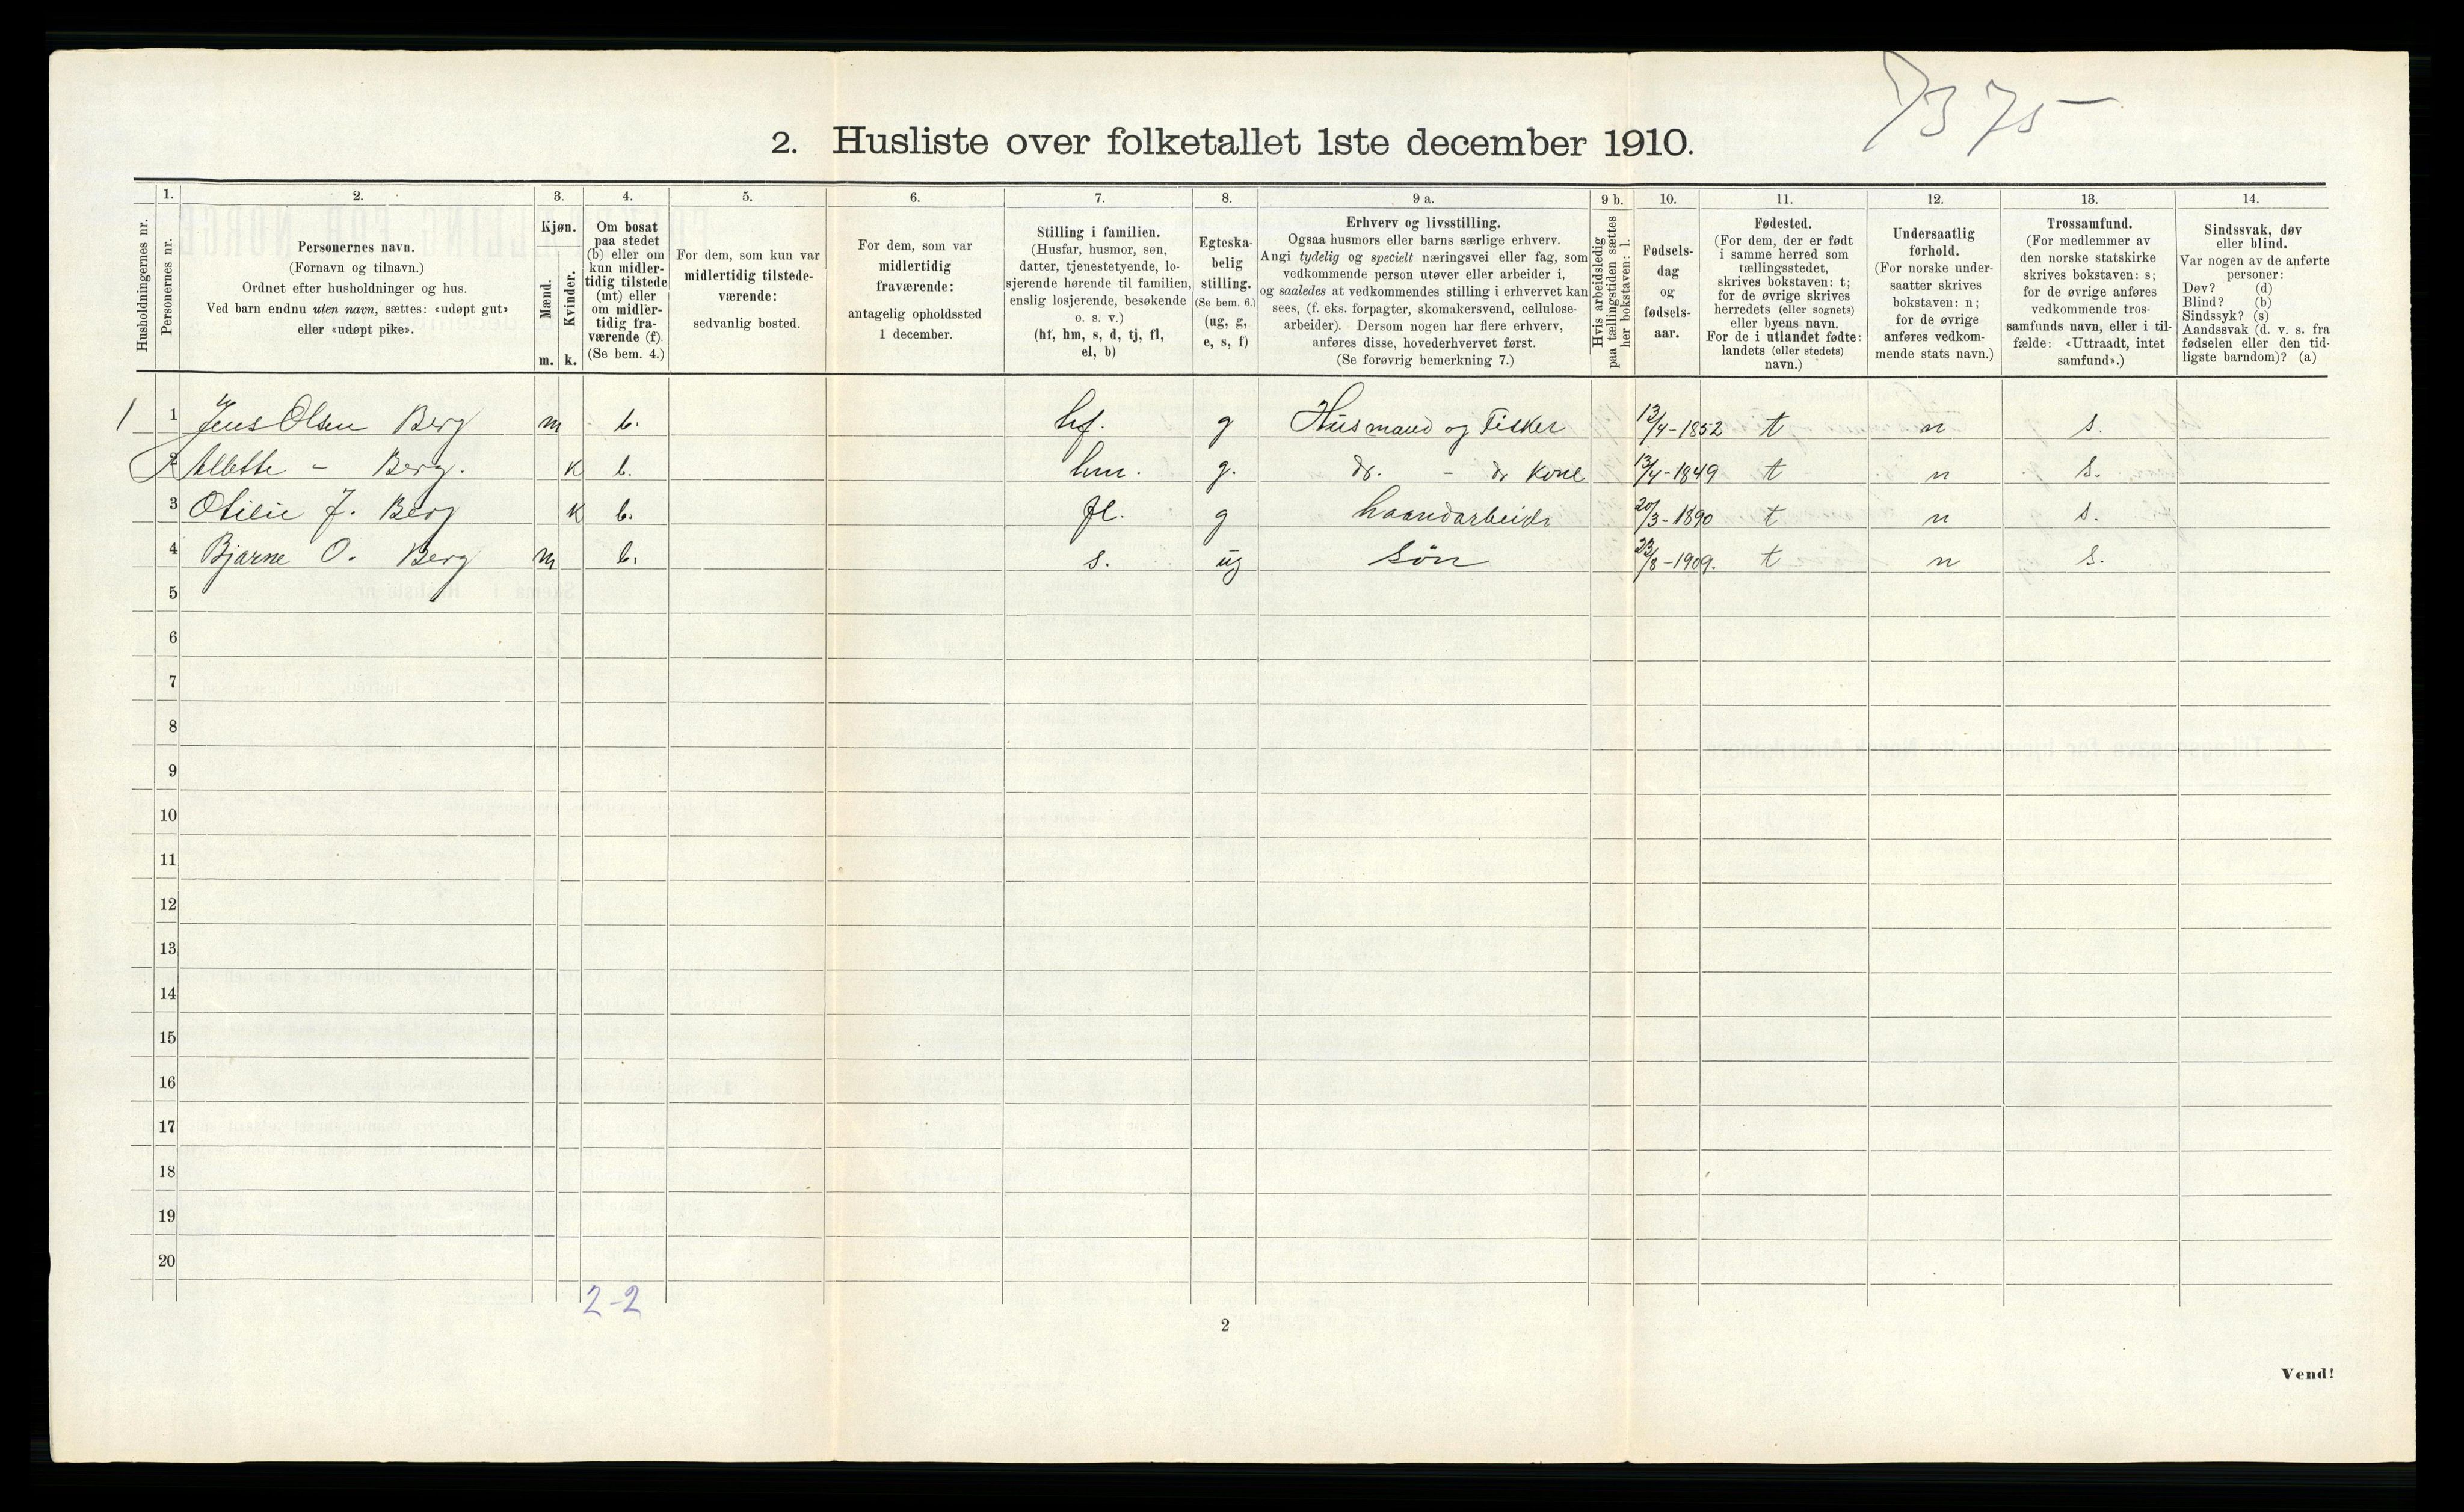 7375
2. Husliste over folketallet 1ste december 1910.
Husholdningernes nr.
1.
Personernes nr.
2.
Personernes navn.
(Fornavn og tilnavn.)
Ordnet efter husholdninger og hus.
Ved barn endnu uten navn, sættes: «udøpt gut»
eller «udøpt pike».
3.
Kjøn.
Mænd.
Kvinder.
m. k.
4.
Om bosat
paa stedet
(b) eller om
kun midler-
tidig tilstede
(mt) eller
om midler-
tidig fra-
værende (f).
(Se bem. 4.)
5.
For dem, som kun var
midlertidig tilstede-
værende:
sedvanlig bosted.
6.
For dem, som var
midlertidig
fraværende:
antagelig opholdssted
1 december.
7.
Stilling i familien.
(Husfar, husmor, søn,
datter, tjenestetyende, lo-
sjerende hørende til familien,
enslig losjerende, besøkende
o. s. v.)
(hf, hm, s, d, tj, fl,
el, b)
8.
Egteska-
belig
stilling.
(Se bem. 6.)
(ug, g,
e, s, f)
9 a.
Erhverv og livsstilling.
Ogsaa husmors eller barns særlige erhverv.
Angi tydelig og specielt næringsvei eller fag, som
vedkommende person utøver eller arbeider i,
og saaledes at vedkommendes stilling i erhvervet kan
sees, (f. eks. forpagter, skomakersvend, cellulose-
arbeider). Dersom nogen har flere erhverv,
anføres disse, hovederhvervet først.
(Se forøvrig bemerkning 7.)
9 b.
Hvis arbeidsledig
paa tællingstiden sættes
her bokstaven: l.
10.
Fødsels-
dag
og
fødsels-
aar.
11.
Fødested.
(For dem, der er født
i samme herred som
tællingsstedet,
skrives bokstaven: t;
for de øvrige skrives
herredets (eller sognets)
eller byens navn.
For de i utlandet fødte:
landets (eller stedets)
navn.)
12.
Undersaatlig
forhold.
(For norske under-
saatter skrives
bokstaven: n;
for de øvrige
anføres vedkom-
mende stats navn.)
13.
Trossamfund.
(For medlemmer av
den norske statskirke
skrives bokstaven: s;
for de øvrige anføres
vedkommende tros-
samfunds navn, eller i til-
fælde: «Uttraadt, intet
samfund».)
14.
Sindssvak, døv
eller blind.
Var nogen av de anførte
personer:
Døv? (d)
Blind? (b)
Sindssyk? (s)
Aandssvak (d. v. s. fra
fødselen eller den tid-
ligste barndom)? (a)
1 1 Jens Olsen Berg m b. hf. g Husmand og Fisker 13/4-1852 t n s.
2 Berg. k b. hm. g. do. - do kone 13/4-1849 t n s.
3 Otilie J. Berg k b. fl. g haandarbeide 20/3-1890 t n s.
4 Bjarne O. Berg m b. s. ug søn 23/8-1909. t n s.
5
6
7
8
9
10
11
12
13
14
15
16
17
18
19
20
2-2
2
Vend!